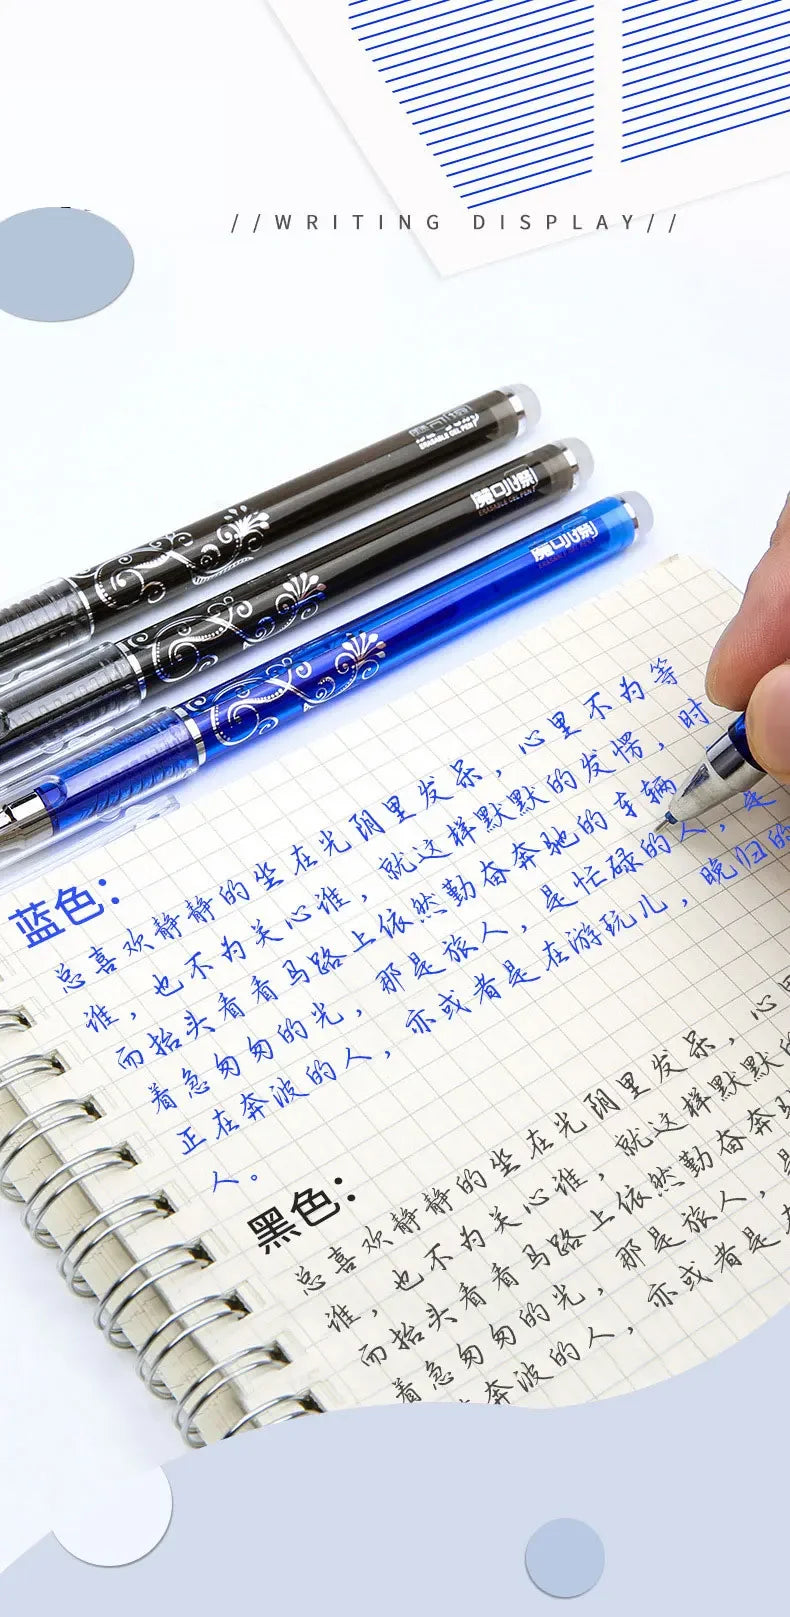 //WRITING DISPLAY//
ERASABLE GEL PEN
ERASABLE GEL PEN
蓝色：
总喜欢静静的坐在光阴里发呆，心里不为等
谁，也不为关心谁，就这样默默的发愣，时
而抬头看看马路上依然勤奋奔驰的车辆
着急匆匆的光，那是旅人，是忙碌的人，是
正在奔波的人，亦或者是在游玩儿，晚归的
人。
黑色：
总喜欢静静的坐在光阴里发呆，心
谁，也不为关心谁，就这样默默的
而抬头看看马路上依然勤奋奔
着急匆匆的光，那是旅人，
奔波的人，亦或者是